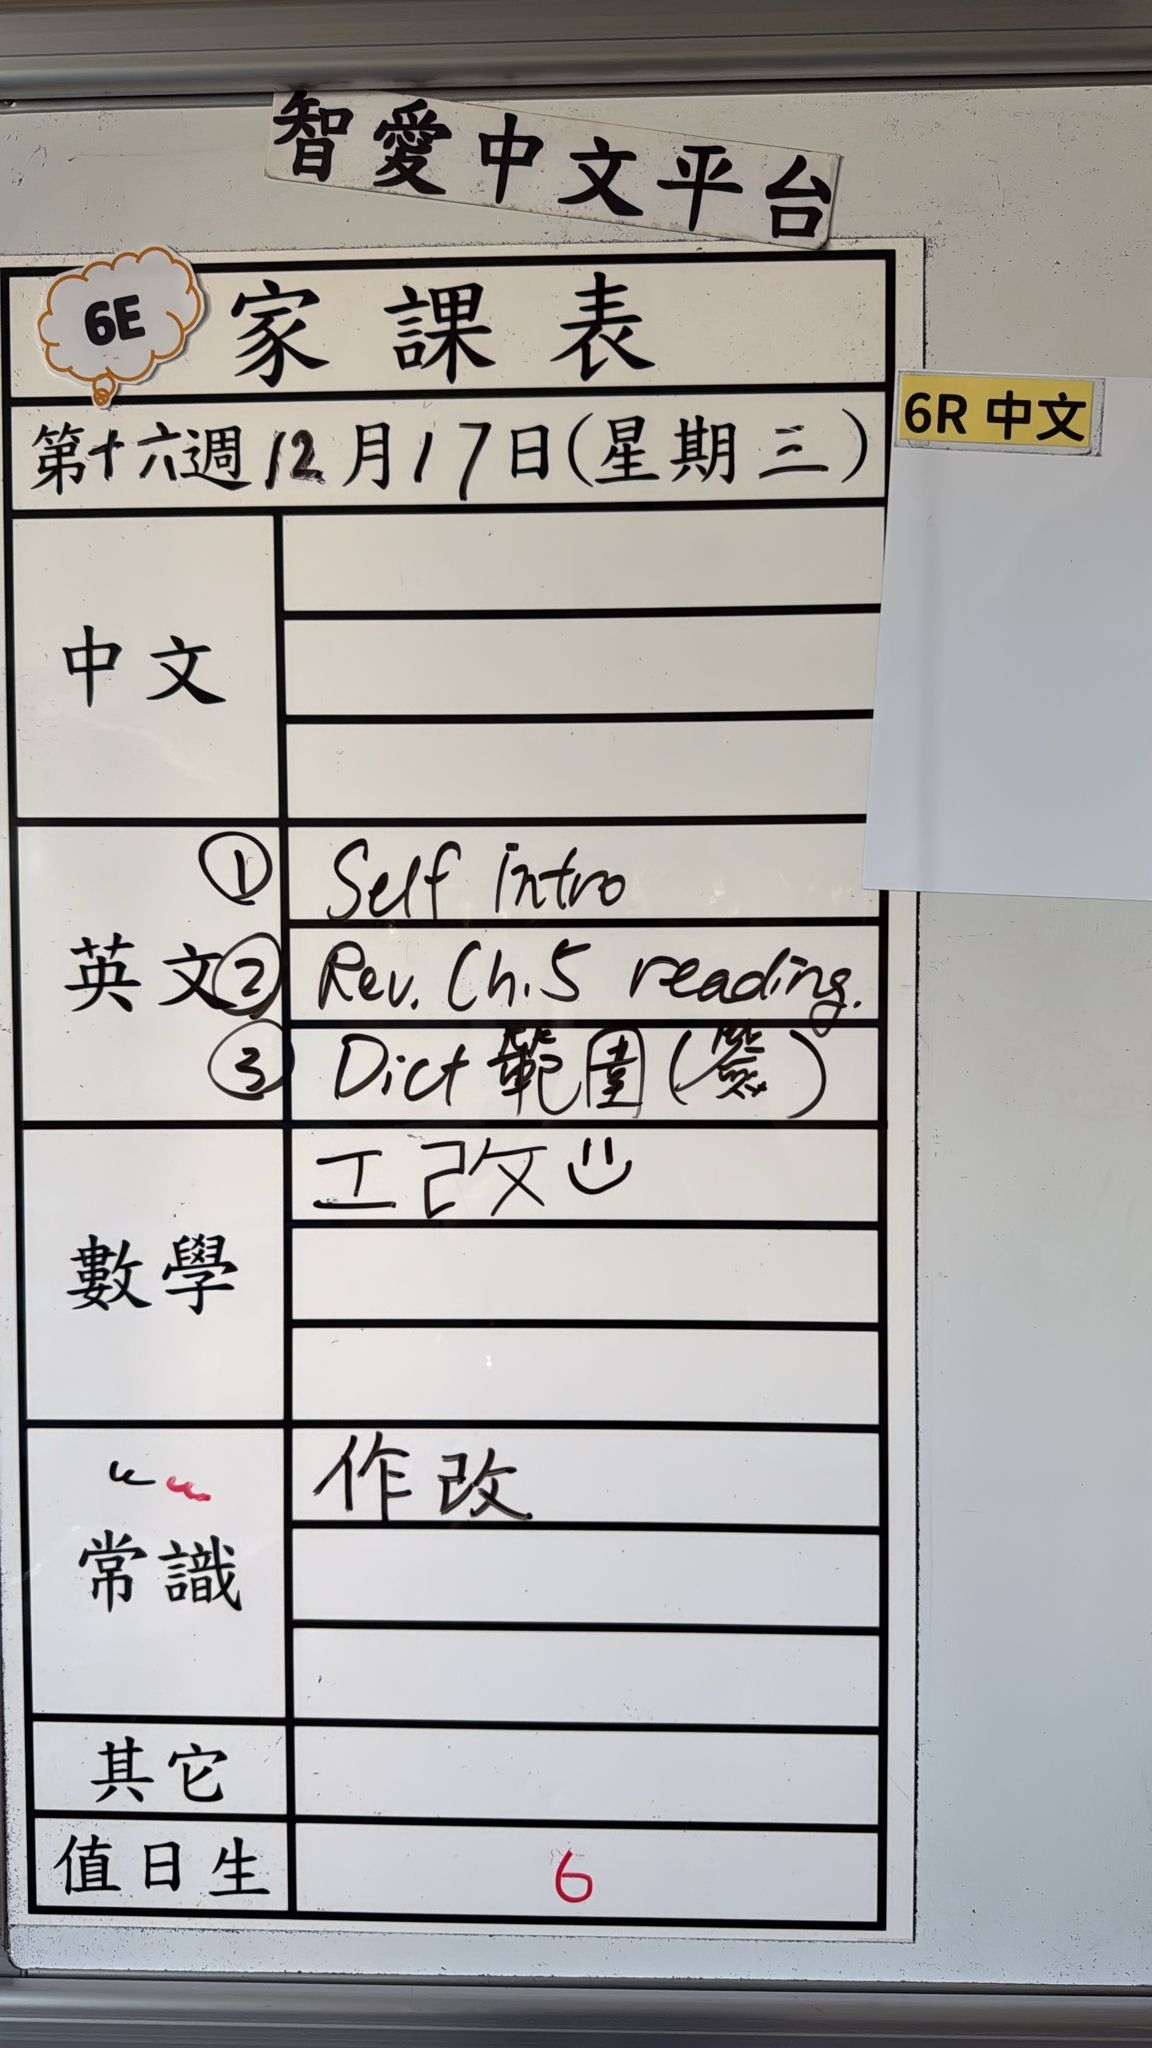 智愛中文平台
6E
家課表
6R 中文
第十六週12月17日(星期三)
中文
英文
① Self intro
② Rev. Ch.5 reading.
③ Dict 範圍(簽)
數學
工改
常識
作改
其它
值日生
6